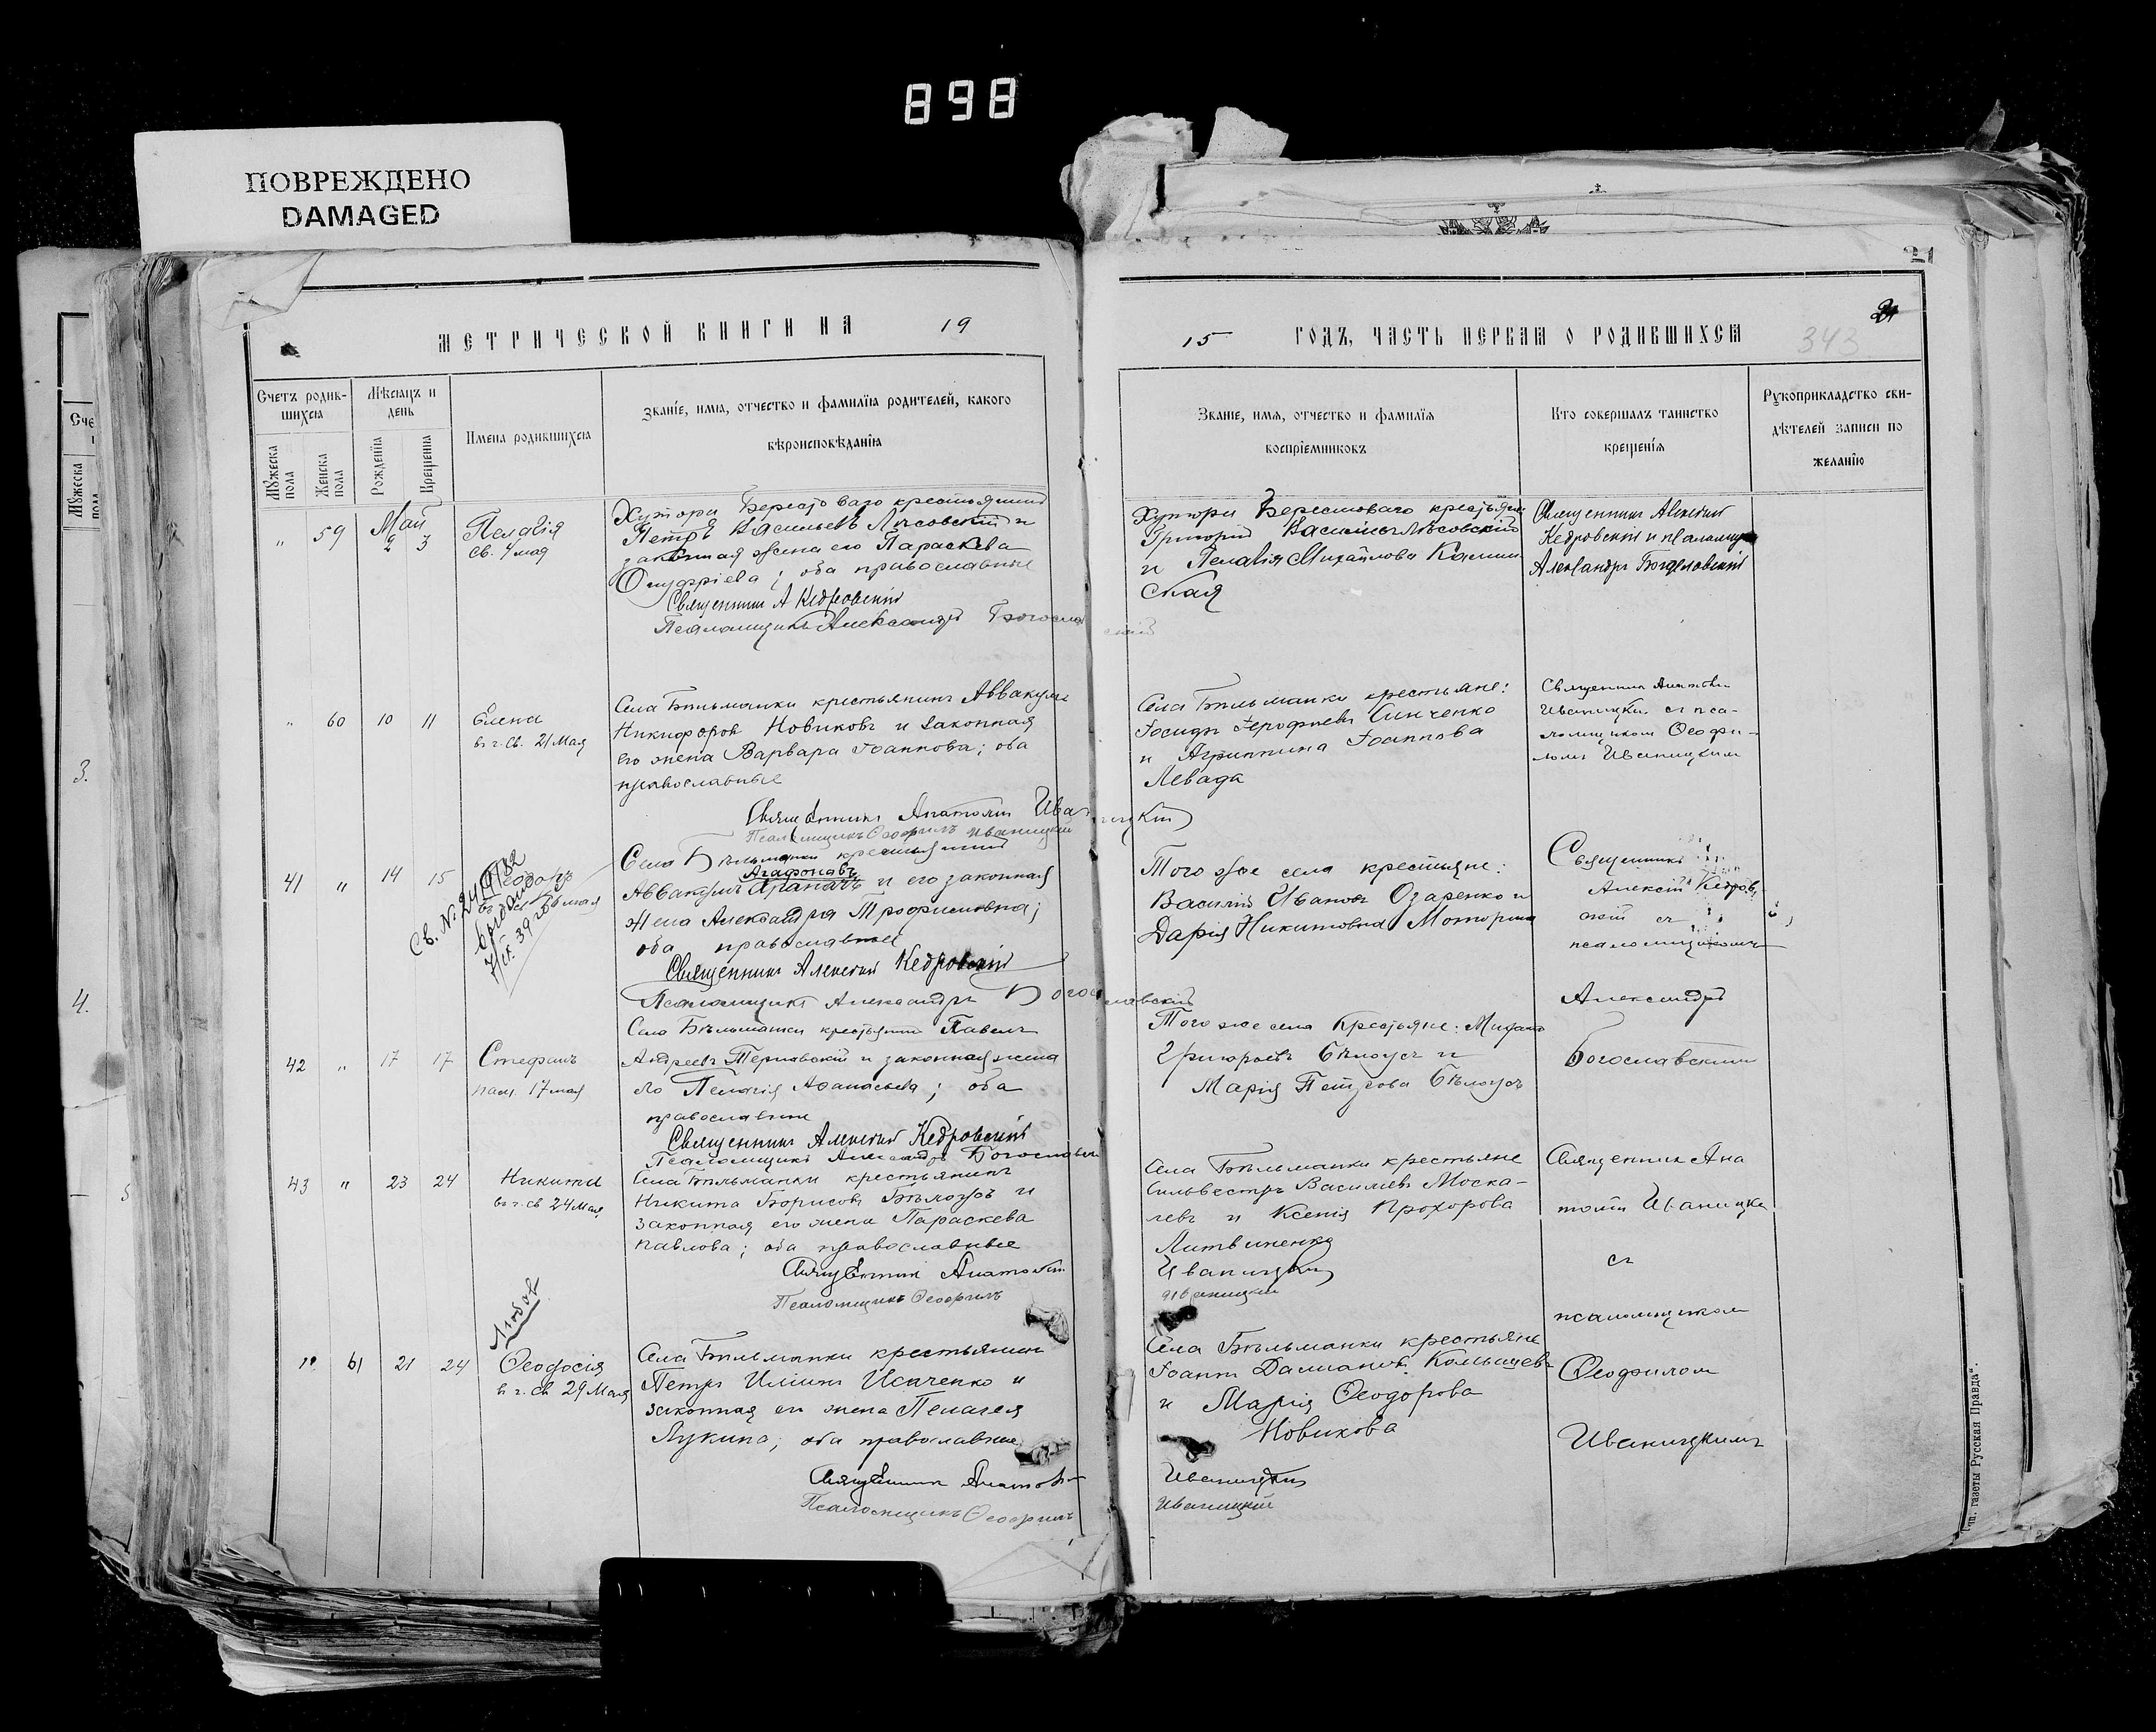 898
ПОВРЕЖДЕНО
DAMAGED
21
МЕТРИЧЕСКОЙ КНИГИ НА 19
15 ГОДЪ, ЧАСТЬ ПЕРВАЯ О РОДИВШИХСЯ
343
Счетъ родив-
шихся
Мужеска пола
Женска пола
Мѣсяцъ и
день
Рожденія
Крещенія
Имена родившихся
Званіе, имя, отчество и фамилія родителей, какого
вѣроисповѣданія
Званіе, имя, отчество и фамилія
воспріемниковъ
Кто совершалъ таинство
крещенія
Рукоприкладство сви-
дѣтелей записи по
желанію
Май
" 59 2 3
Пелагія
св. 4 мая
Хутора Берестоваго крестьянинъ
Петръ Васильевъ Лясовскій и
законная жена его Параскева
Онуфріева; оба православные
Священникъ А Кедровскій
Псаломщикъ Александръ Богословскій
Хутора Берестоваго крестьяне
Григорій Васильевъ Лясовскій
и Пелагія Михайлова Калин
ская
Священникъ Алексій
Кедровскій и псаломщикъ
Александръ Богословскій
" 60 10 11
Елена
в ч. св. 21 Мая
Села Бѣльманки крестьянинъ Аввакумъ
Никифоровъ Новиковъ и законная
его жена Варвара Іоаннова; оба
православные
Священникъ Анатолій Иваницкій
Псаломщикъ Ѳеофилъ Иваницкій
Села Бѣльманки крестьяне:
Іосифъ Іерофеевъ Синченко
и Агриппина Іоаннова
Левада
Священникъ Анатолій
Иваницкій съ пса-
ломщикомъ Ѳеофи-
ломъ Иваницкимъ
41 " 14 15
Ѳеодоръ
Св. № 249182
выдано
7/IX 39 года
Села Бѣльманки крестьянинъ
Агафоновъ
Аввакумъ и его законная
жена Александра Трофимовна;
оба православные
Священникъ Алексій Кедровскій
Псаломщикъ Александръ Богословскій
Того же села крестьяне:
Василій Ивановъ Озаренко и
Дарія Никитовна Моторина
Священникъ
Алексій Кедров-
скій съ
псаломщикомъ
Александръ
Богославскимъ
42 " 17 17
Стефанъ
пам. 17 мая
Села Бѣльманки крестьянинъ Павелъ
Андреевъ Терновскій и законная жена
его Пелагія Афанасьева; оба
православные
Священникъ Алексій Кедровскій
Псаломщикъ Александръ Богославскій
Того же села Крестьяне: Михаилъ
Григорьевъ Бѣлоусъ и
Марія Петрова Бѣлоусъ
43 " 23 24
Никита
в ч. св 24 Мая
Села Бѣльманки крестьянинъ
Никита Борисовъ Бѣлоусъ и
законная его жена Параскева
Павлова; оба православные
Священникъ Анатолій
Псаломщикъ Ѳеофилъ
Села Бѣльманки крестьяне
Сильвестръ Васильевъ Моска-
левъ и Ксенія Прохорова
Литвиненко
Иваницкій
Иваницкій
Священникъ Ана
толій Иваницкій
съ
псаломщикомъ
Ѳеофиломъ
Иваницкимъ
" 61 21 24
Ѳеодосія
в ч. св 29 Мая
Села Бѣльманки крестьянинъ
Петръ Иліинъ Исаченко и
законная его жена Пелагея
Лукина; оба православные
Священникъ Анатолій
Псаломщикъ Ѳеофилъ
Села Бѣльманки крестьяне
Іоаннъ Даміановъ Кольщевъ
и Марія Ѳеодорова
Новикова
Иваницкій
Иваницкій
Тип. газеты „Русская Правда".